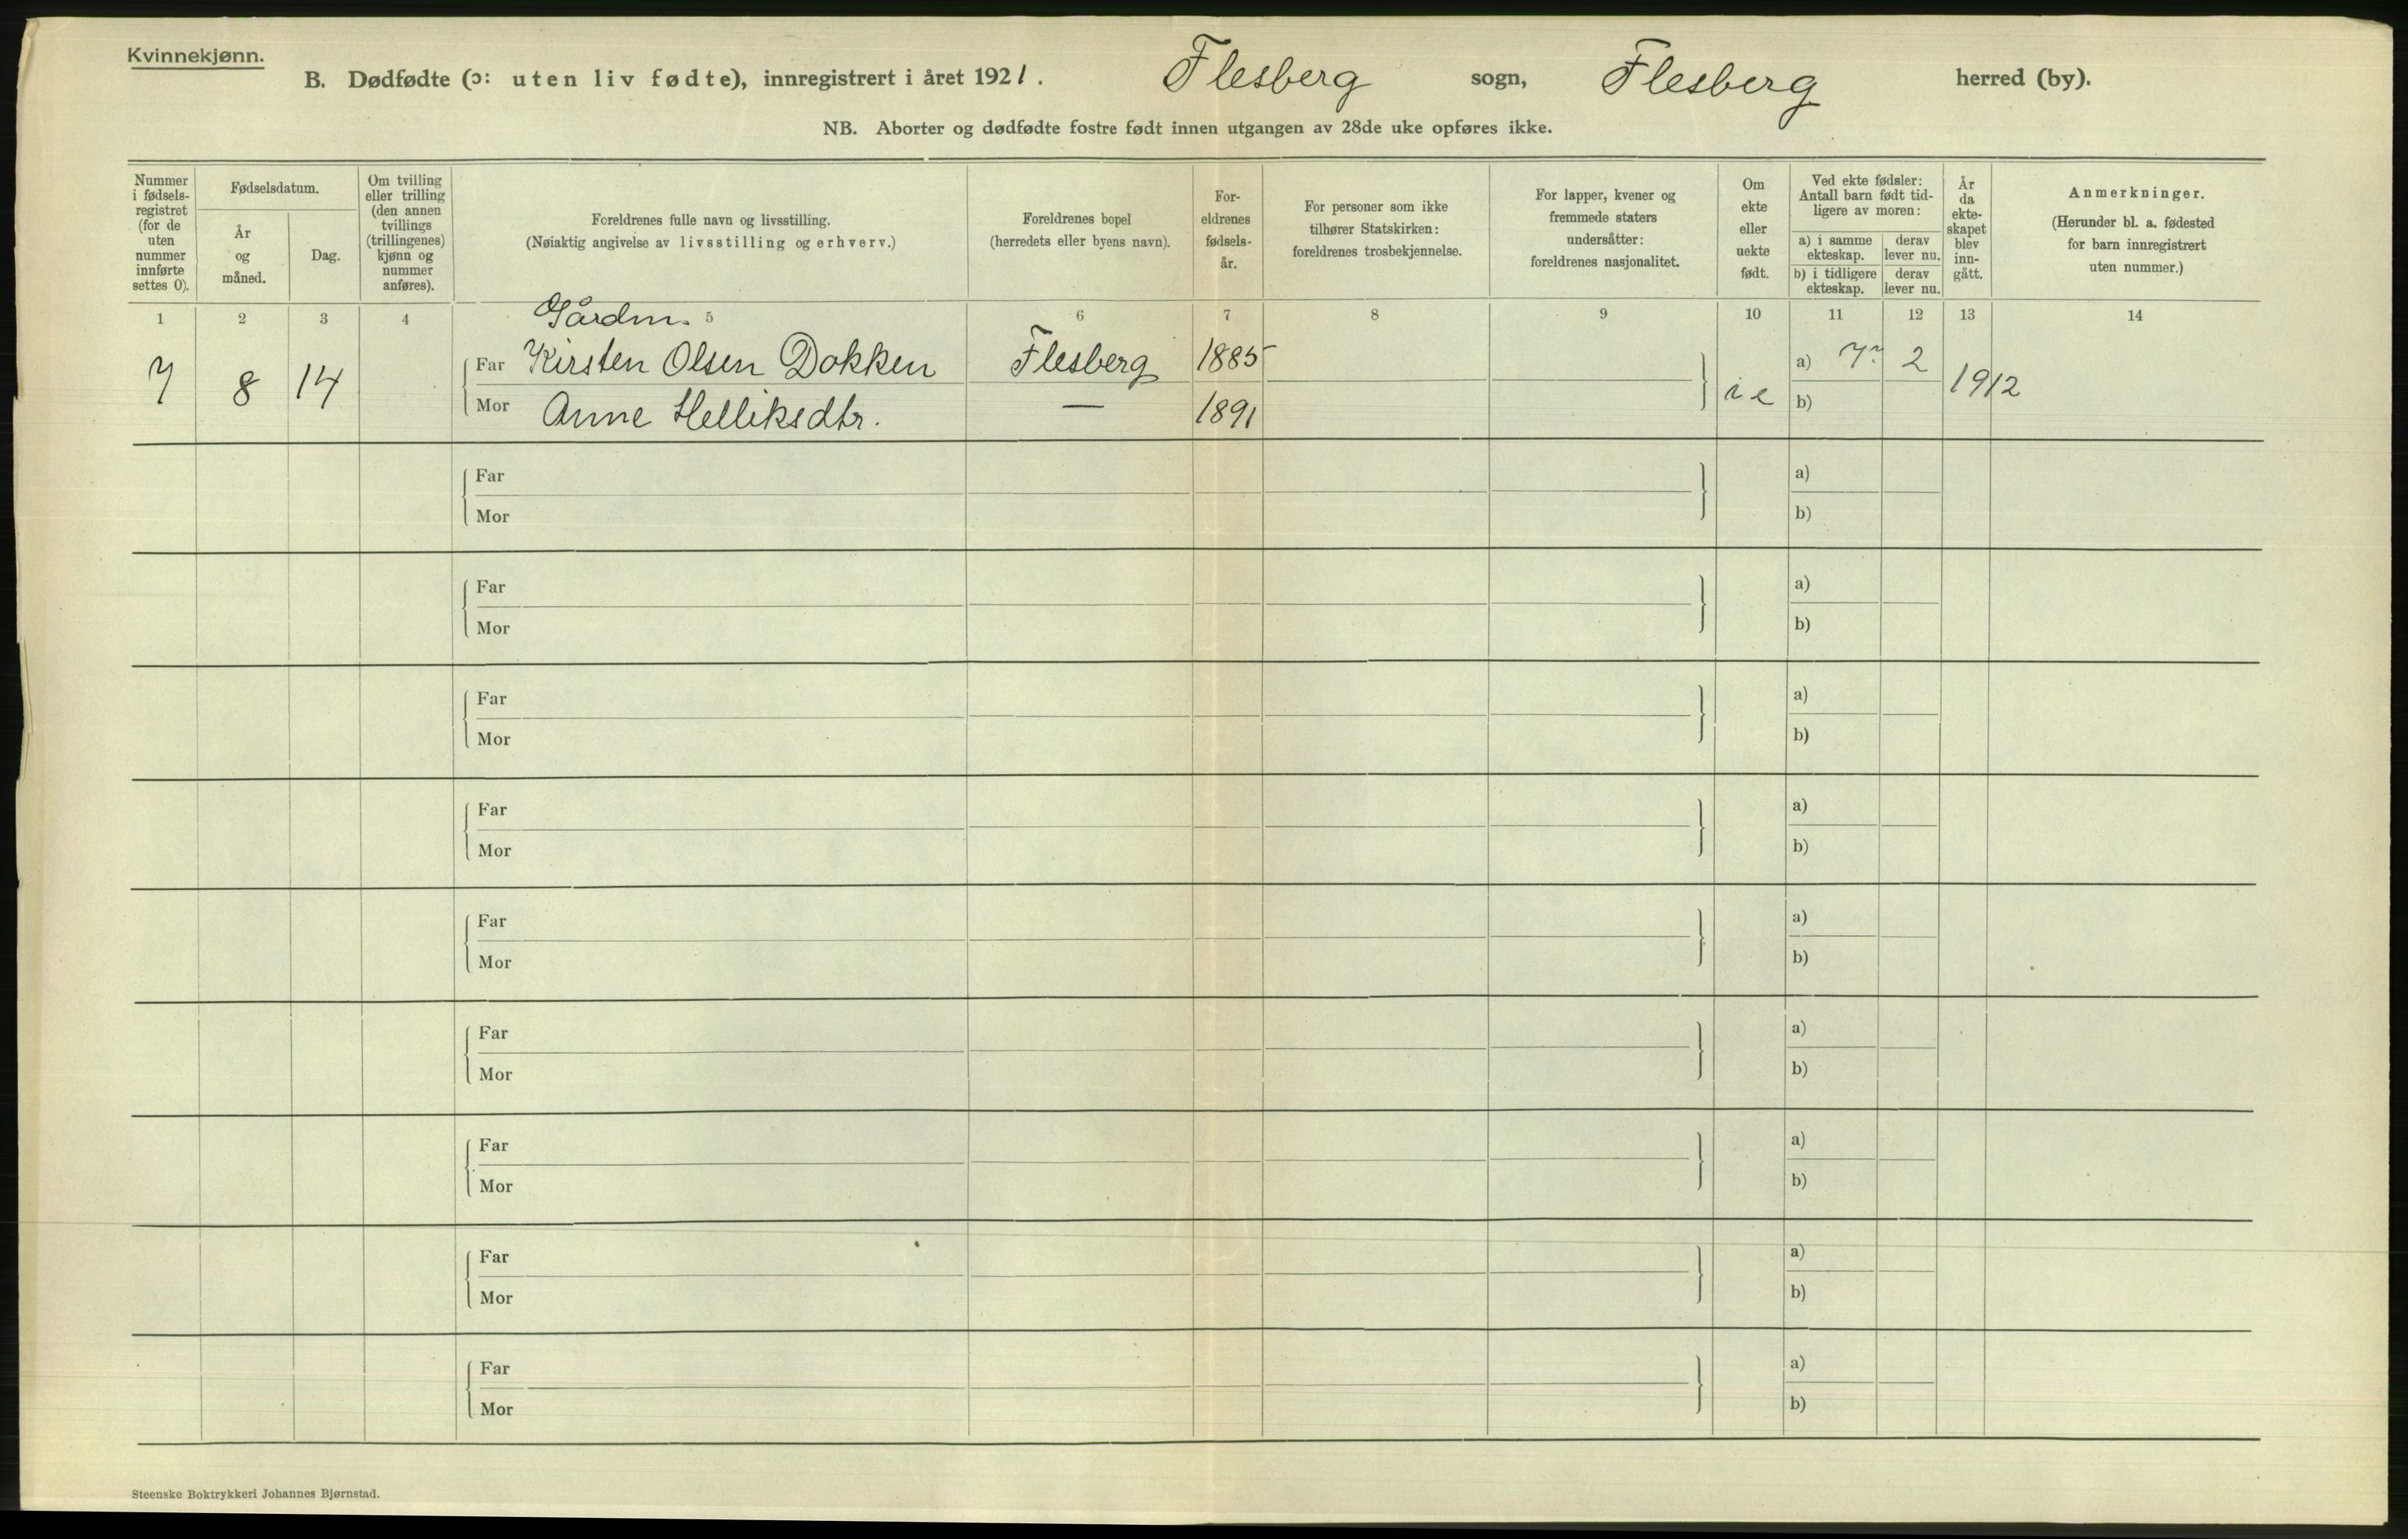 Kvinnekjønn.
B. Dødfødte (ɔ: uten liv fødte), innregistrert i året 1921. Flesberg sogn, Flesberg herred (by).
NB. Aborter og dødfødte fostre født innen utgangen av 28de uke opføres ikke.
Nummer
i fødsels-
registret
(for de
uten
nummer
innførte
settes 0).
Fødselsdatum.
År
og
måned.
Dag.
Om tvilling
eller trilling
(den annen
tvillings
(trillingenes)
kjønn og
nummer
anføres).
Foreldrenes fulle navn og livsstilling.
(Nøiaktig angivelse av livsstilling og erhverv.)
Foreldrenes bopel
(herredets eller byens navn).
For-
eldrenes
fødsels-
år.
For personer som ikke
tilhører Statskirken:
foreldrenes trosbekjennelse.
For lapper, kvener og
fremmede staters
undersåtter:
foreldrenes nasjonalitet.
Om
ekte
eller
uekte
født.
Ved ekte fødsler:
Antall barn født tid-
ligere av moren:
a) i samme
ekteskap.
derav
lever nu.
b) i tidligere
ekteskap.
derav
lever nu.
År
da
ekte-
skapet
blev
inn-
gått.
Anmerkninger.
(Herunder bl. a. fødested
for barn innregistrert
uten nummer.)
1 2 3 4 5 6 7 8 9 10 11 12 13 14
Gårdm.
7 8 14
Far Kirsten Olsen Dokken Flesberg 1885 a) 7 2
Mor Anne Helliksdtr. — 1891 i e b) 1912
Far a)
Mor b)
Far a)
Mor b)
Far a)
Mor b)
Far a)
Mor b)
Far a)
Mor b)
Far a)
Mor b)
Far a)
Mor b)
Far a)
Mor b)
Far a)
Mor b)
Steenske Boktrykkeri Johannes Bjørnstad.